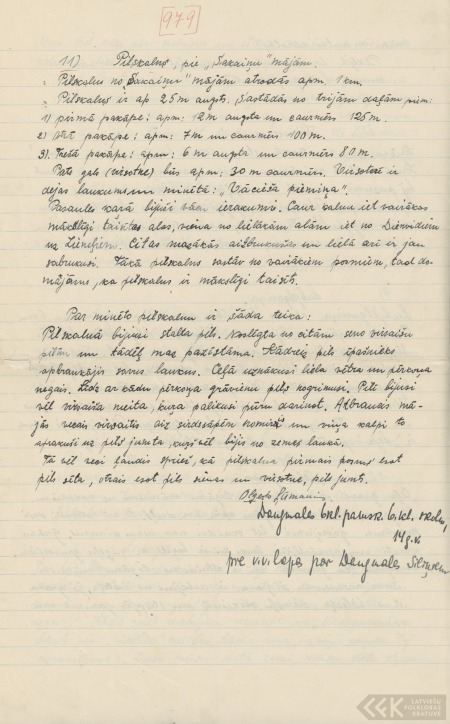 979
11) Pilskalns, pie „Sakaiņu" mājām.
Pilskalns no „Sakaiņu" mājām atrodās apm. 1 km.
Pilskalns ir ap 25 m augsts. Sastādās no trijām daļām piem:
1) pirmā pakāpe: apm: 12 m augsta un caurmērs 125 m.
2) otrā pakāpe: apm: 7 m un caurmērs 100 m.
3). Trešā pakāpe: apm: 6 m augsta un caurmērs 80 m.
Pats gals (virsotne) būs apm: 30 m caurmērs. Virsotnē ir
dejas laukums un minētā: „Vācieša pieminņa".
Pasaules karā bijuši šām ierakumi. Caur kalnu iet vairākas
mākslīgi taisītas alas, viena no lielākām alām iet no Dienvidiem
uz Ziemeļiem. Citas mazākās aizbrukušas un lielā arī ir jau
sabrukusi. Tā kā pilskalns sastāv no vairākiem posmiem, tad do-
mājams, ka pilskalns ir mākslīgi taisīts.
Par minēto pilskalnu ir šāda teika:
Pilskalnā bijusi stalta pils. Noslēgta no citām seno virsaišu
pilīm un tādēļ maz pazīstama. Kādreiz pils īpašnieks
apbraukājis savus laukus. Ceļā uznākusi liela vētra un pērkona
negais. Līdz ar kādu pērkoņa grāvienu pils nogrimusi. Pilī bijusi
vēl virsaiša meita, kura palikusi pūru darinot. Atbraucis mā-
jās vecais virsaitis aiz sirdssāpēm nomiris un viņa kalpi to
aprakuši zem pils jumta, kurš vēl bijis no zemes laukā.
Tā vēl veci ļaudis sprieš, kā pilskalna pirmais posms esot
pils sēta, otrais esot pils sienas un virsotne, pils jumts.
Olģerts
Daugmales 6 kl. pamsk. 6. kl. skoln,
14 g. v.
pie v. v. lapa par Daugmales
LATVIEŠU
FOLKLORAS
KRĀTUVE